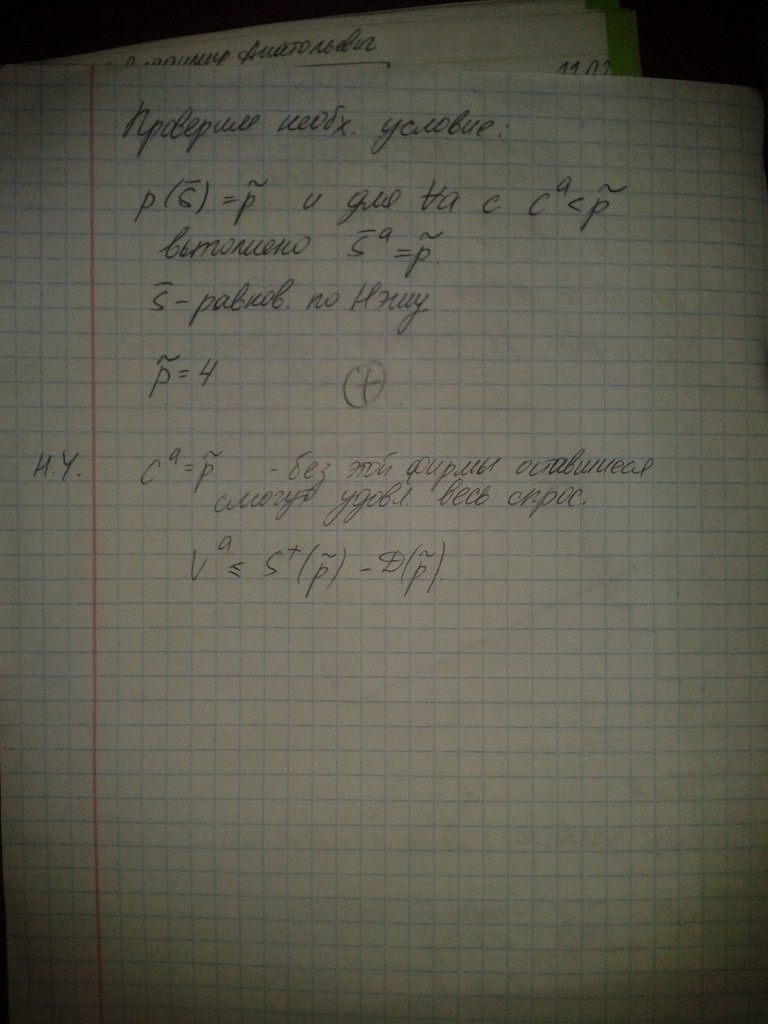 Владимир Анатольевич
11.02
Проверим необх. условие:
p(s̄) = p̃ и для ∀a с cᵃ < p̃
выполнено s̄ᵃ = p̃.
s̄ - равнов. по Нэшу
p̃ = 4 (+)
Н.У. cᵃ = p̃ - без этой фирмы оставшиеся
смогут удовл. весь спрос.
Vᵃ ≤ S⁺(p̃) - D(p̃).